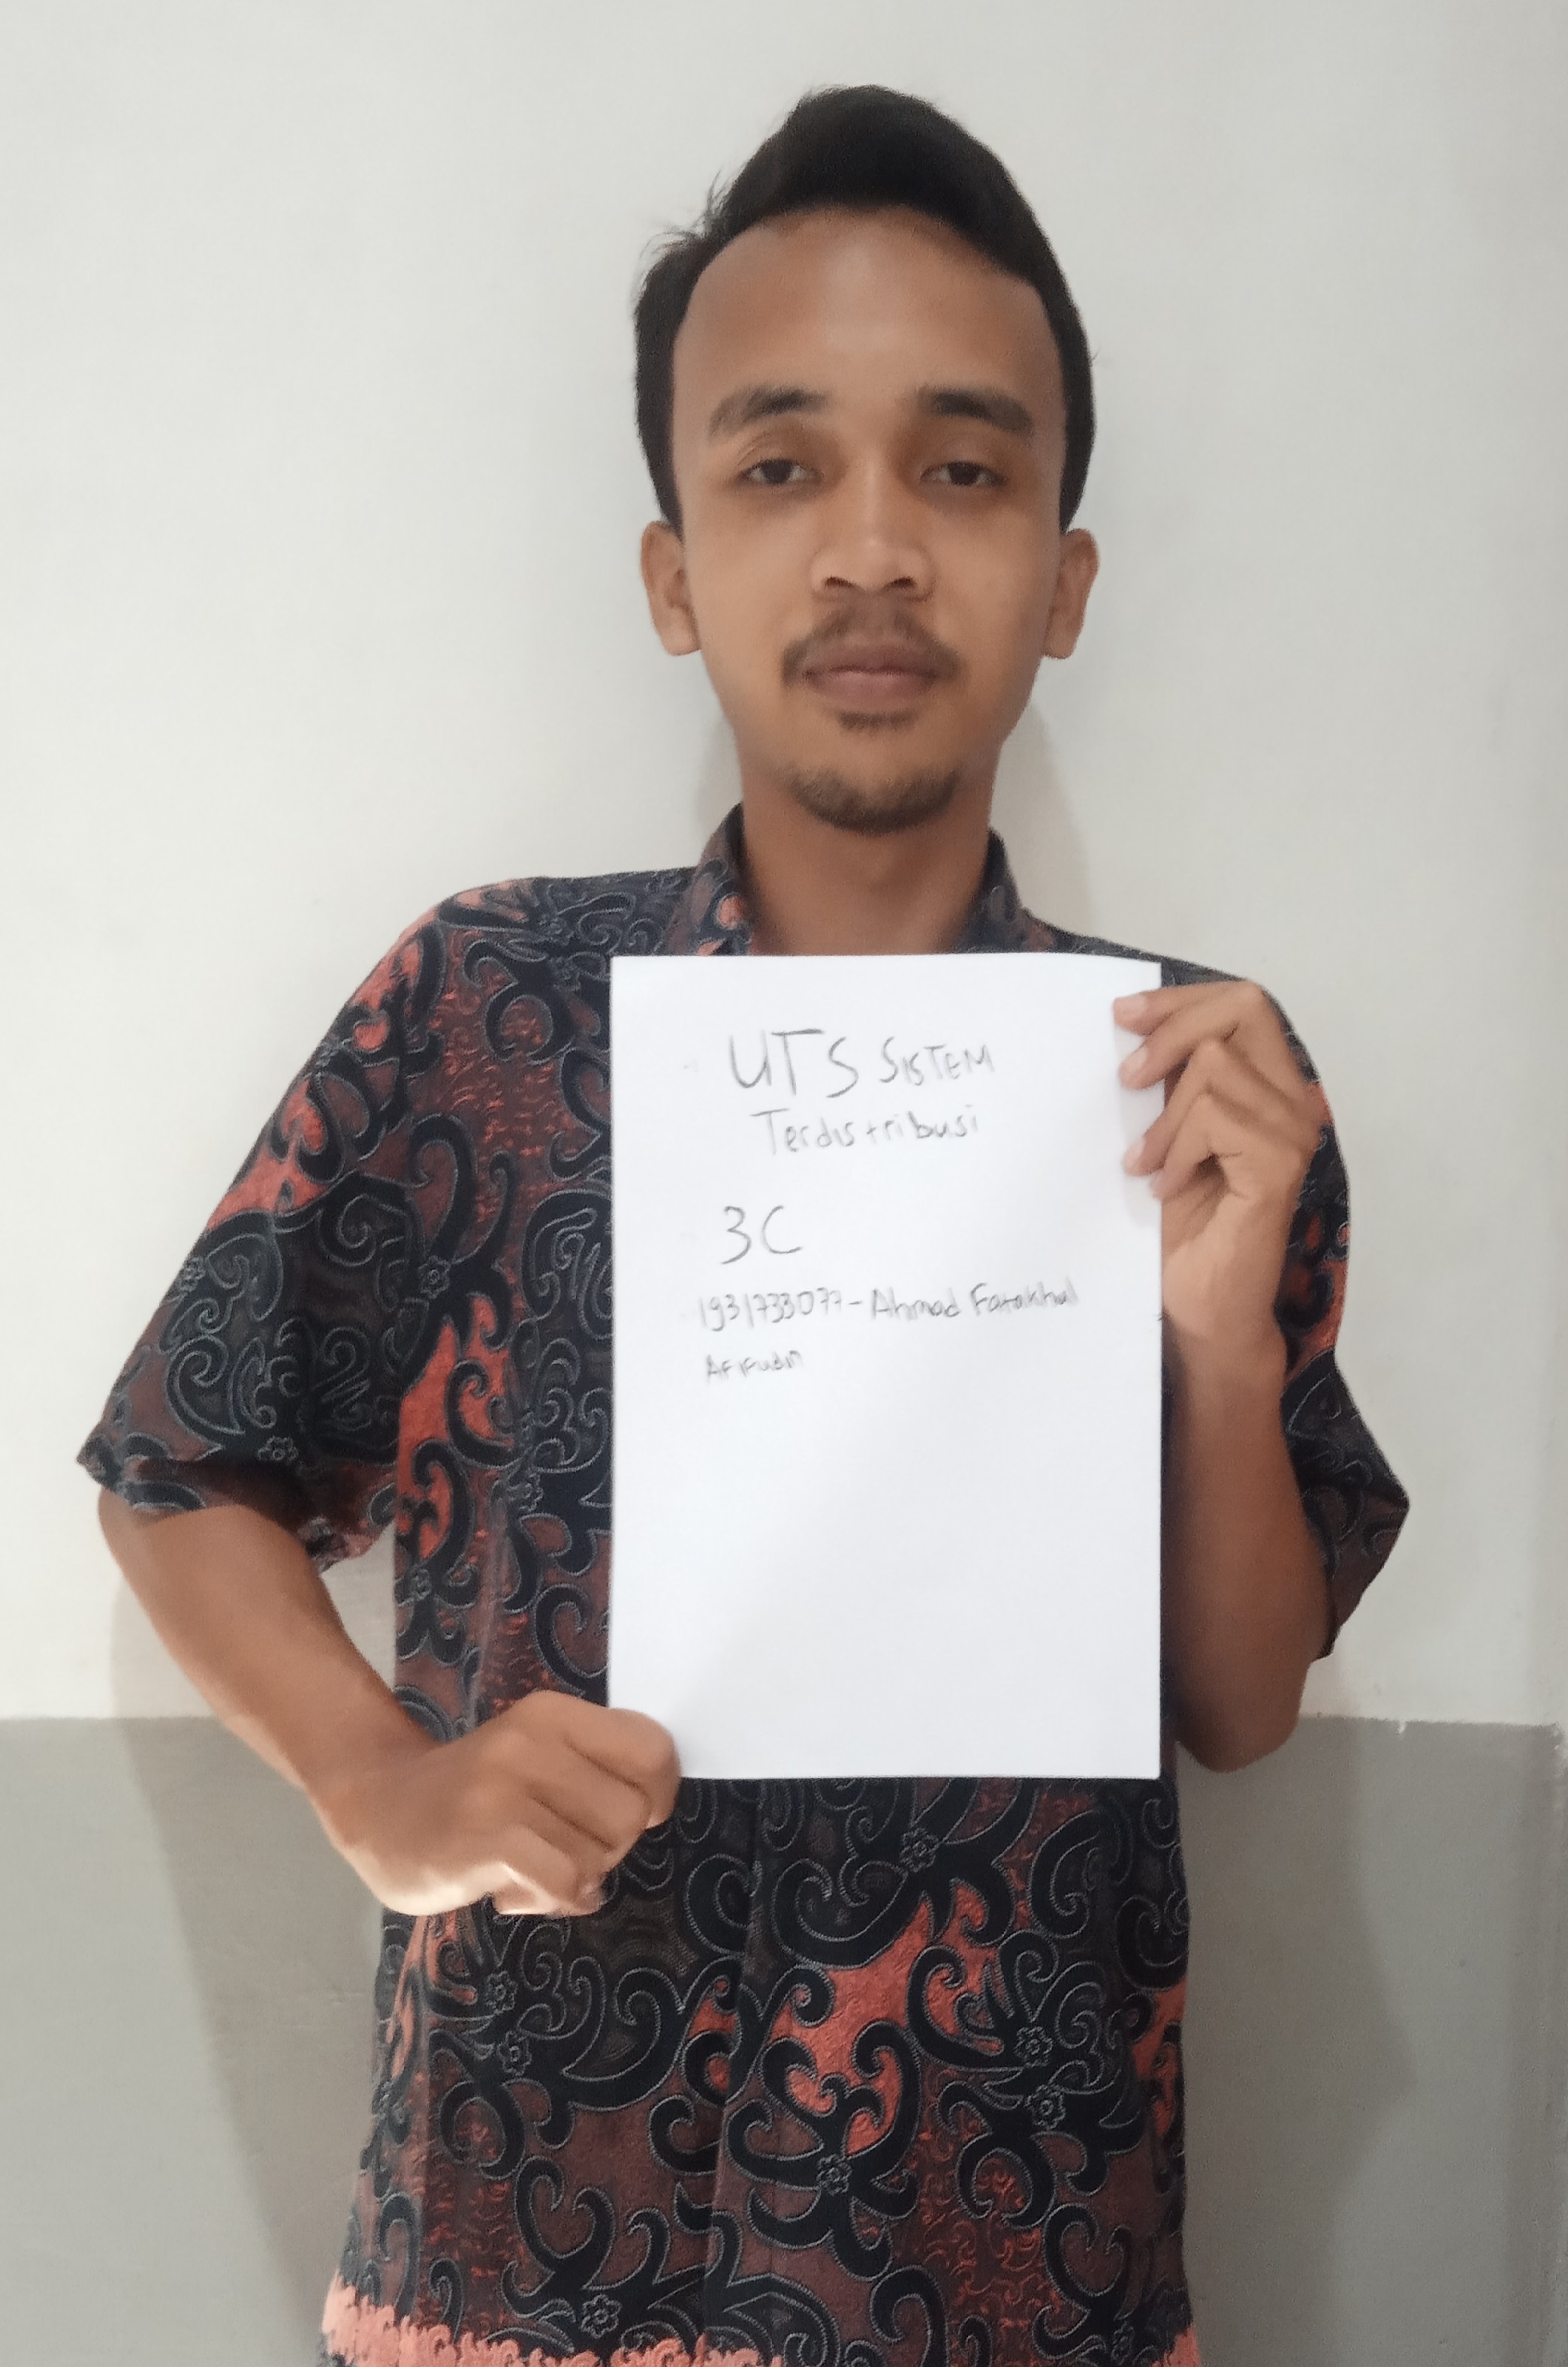 UTS SISTEM
Terdistribusi
3C
1931733077 - Ahmad Fatakhul
Afifudin